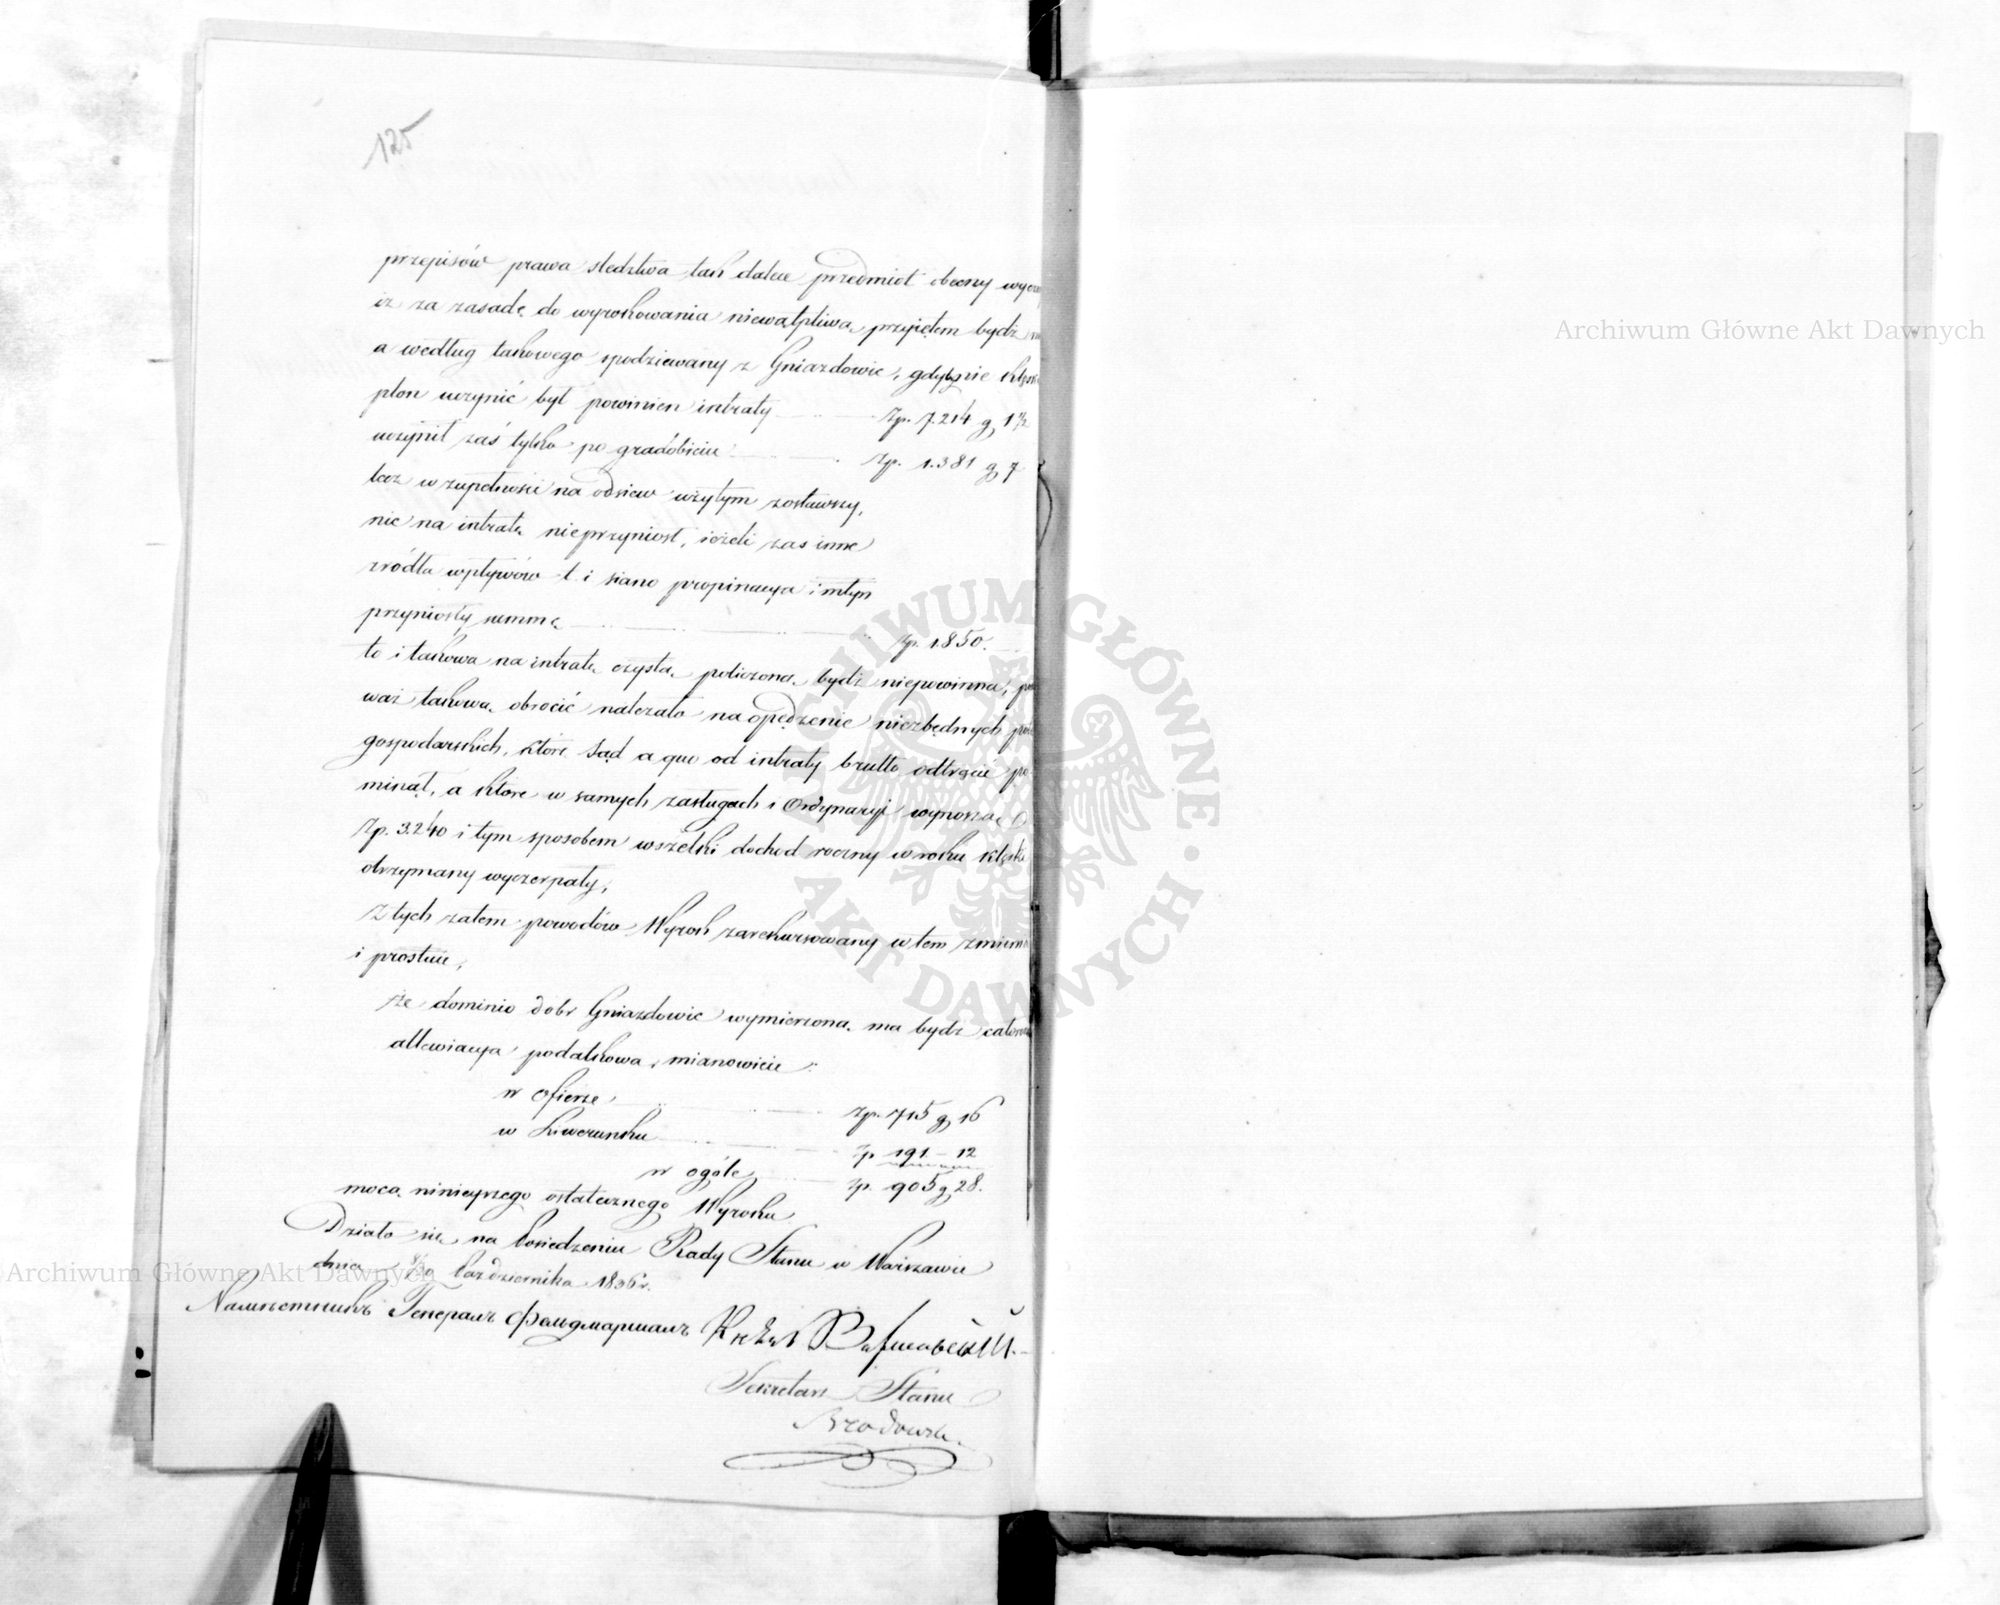 125
przepisów prawa śledztwa tak dalece przedmiot obecny
iż za zasadę do wyrokowania niewątpliwą przyiętem bydź
a według takowego spodziewany z Gniazdowic, gdyby nie
plon uczynić był powinien intraty Zp. 7.214 g 1½
uczynił zaś tylko po gradobiciu Zp. 1.381 g 7
lecz w zupełności na odsiew użytym zostawszy,
nic na intratę nieprzyniosł, ieżeli zas inne
zródła wpływów t. i siano propinacya i młyn
przyniosły summę Zp. 1850.
to i takowa na intratę czystą policzoną bydź niepowinna,
waż takową obrócić należało na opędzenie niezbędnych
gospodarskich, które Sąd a quo od intraty brutto odtrącić
minął, a które w samych zasługach i Ordynaryi wynoszą
Zp. 3.240 i tym sposobem wszelki dochod roczny w roku
otrzymany wyczerpały;
Z tych zatem powodów Wyrok zarekursowany w tem
i prostuie,
że dominio dobr Gniazdowic wymierzoną ma bydź
allewiacya podatkowa, mianowicie:
w Ofierze Zp. 715 g 16
w Liwerunku Zp 191 - 12
w ogóle Zp. 905 g 28.
mocą ninieyszego ostatecznego Wyroku
Działo się na Posiedzeniu Rady Stanu w Warszawie
dnia Października 1836 r.
Намѣстникъ Генералъ Фельдмаршалъ Князь Варшавскій
Sekretarz Stanu
Archiwum Główne Akt Dawnych
Archiwum Główne Akt Dawnych
ARCHIWUM GŁÓWNE · AKT DAWNYCH ·